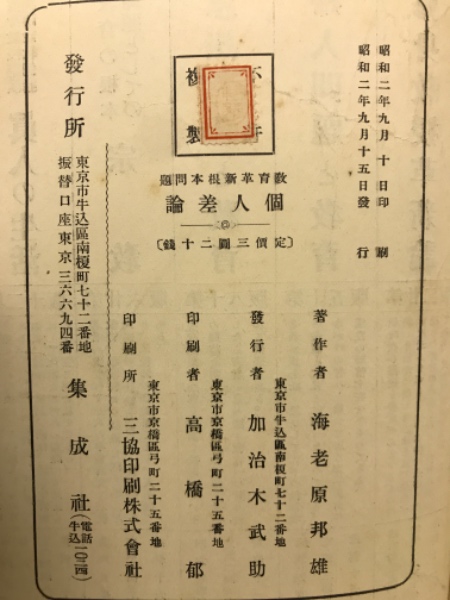 昭和二年九月十日印刷
昭和二年九月十五日發行
不許
複製
教育革新根本問題
個人差論
〔定價三圓二十錢〕
著作者 海老原邦雄
東京市牛込區南榎町七十二番地
發行者 加治木武助
東京市京橋區弓町二十五番地
印刷者 高橋郁
東京市京橋區弓町二十五番地
印刷所 三協印刷株式會社
發行所
東京市牛込區南榎町七十二番地
振替口座東京三六六九四番
集成社
(電話牛込二〇二四)